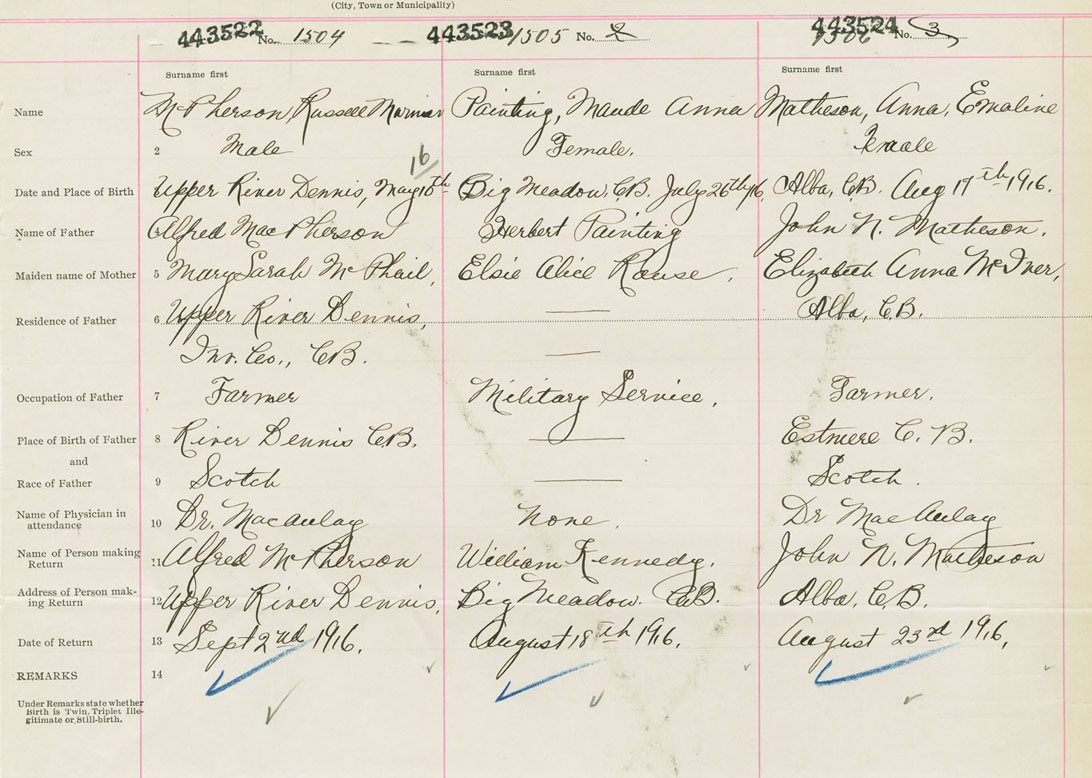 (City, Town or Municipality)
443522 No. 1504 443523 1505 No. 2 443524 1506 No. 3
Surname first Surname first Surname first
Name McPherson, Russell Painting, Maude Anna Matheson, Anna, Emaline
Sex 2 Male Female. Female
16
Date and Place of Birth Upper River Dennis, May 10th Big Meadow, C.B. July 26th/16, Alba, C.B. Aug 17th 1916.
Name of Father 4 Alfred MacPherson Herbert Painting John N. Matheson.
Maiden name of Mother 5 Mary Sarah McPhail, Elsie Alice Rause, Elizabeth Anna McIver,
Residence of Father 6 Upper River Dennis, — Alba, C.B.
Inv. Co., C.B. —
Occupation of Father 7 Farmer Military Service, Farmer.
Place of Birth of Father 8 River Dennis C.B. — Estmere C.B.
and
Race of Father 9 Scotch — Scotch.
Name of Physician in attendance 10 Dr. MacAulay None. Dr MacAulay
Name of Person making Return 11 Alfred McPherson William Kennedy. John N. Matheson
Address of Person making Return 12 Upper River Dennis, Big Meadow. C.B. Alba, C.B.
Date of Return 13 Sept 2nd 1916, August 18th 1916, August 23rd 1916,
REMARKS 14
Under Remarks state whether
Birth is Twin, Triplet Ille-
gitimate or Still-birth.